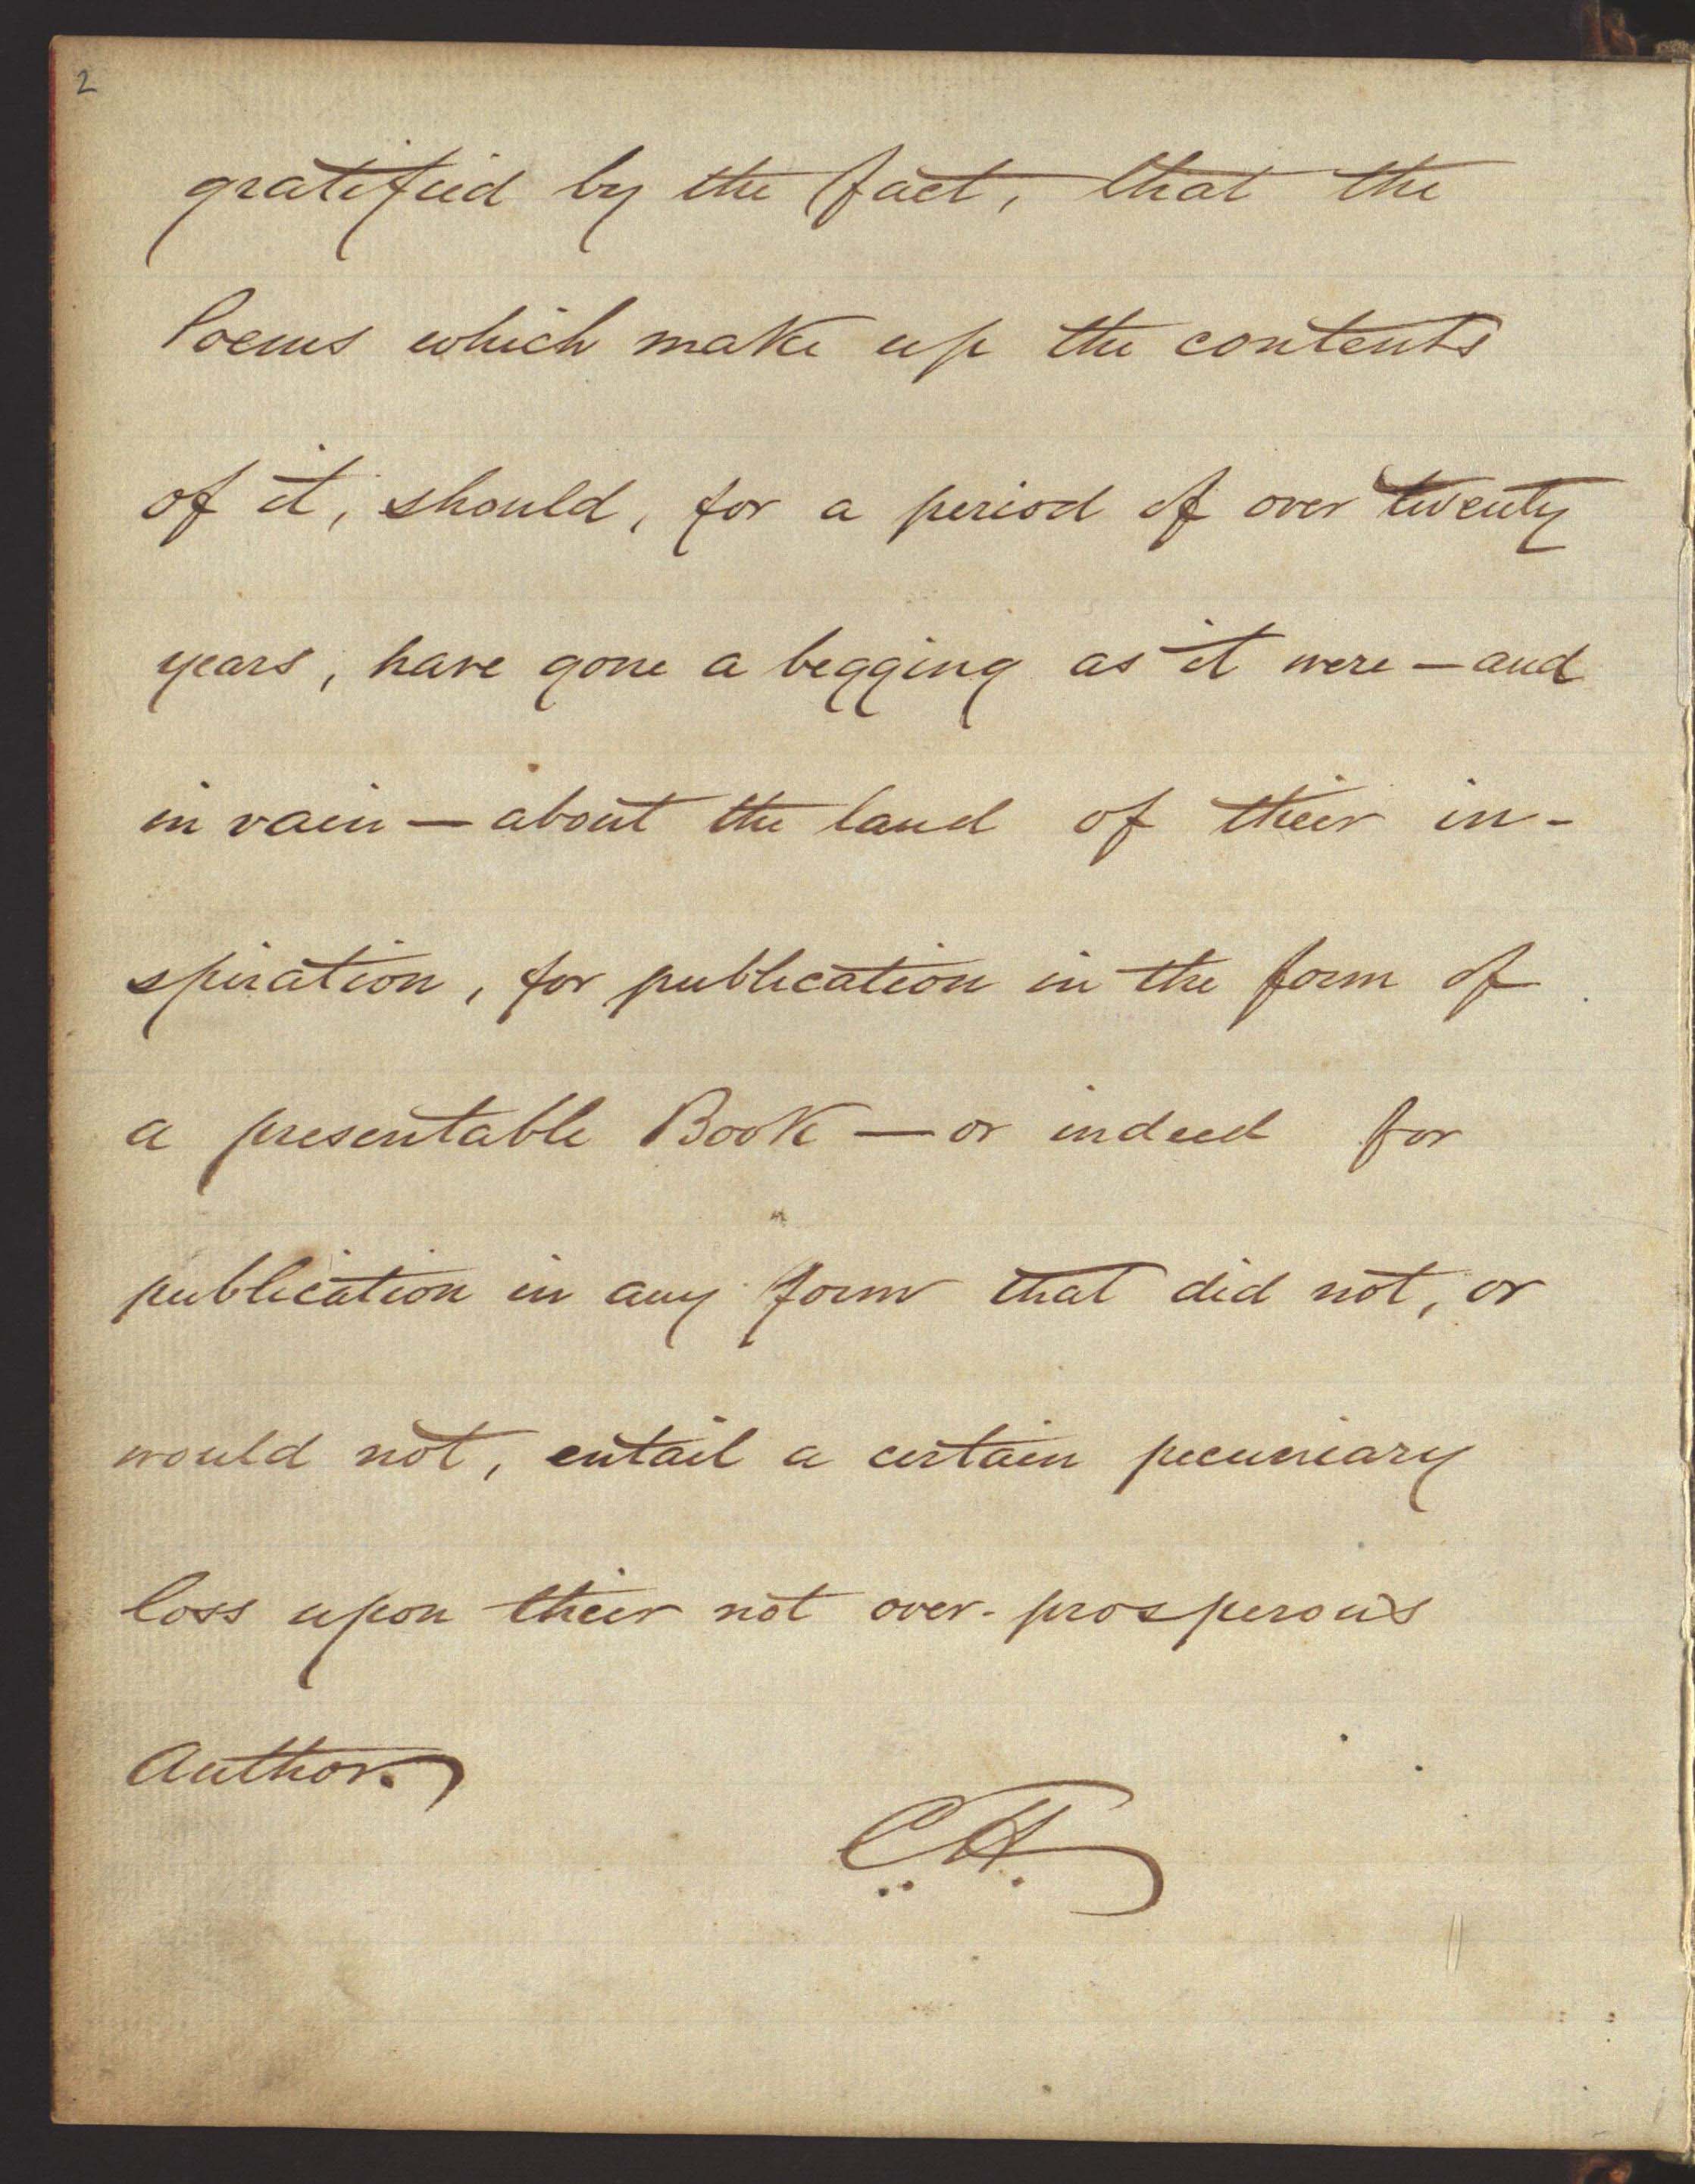 2
gratified by the fact, that the
Poems which make up the contents
of it, should, for a period of over twenty
years, have gone a begging as it were — and
in vain — about the land of their in-
spiration, for publication in the form of
a presentable Book — or indeed for
publication in any form that did not, or
would not, entail a certain pecuniary
loss upon their not over-prosperous
Author.
C. H.